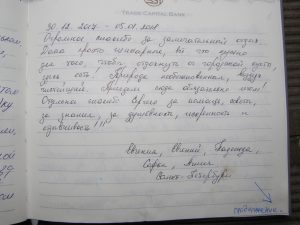 TRADE CAPITAL BANK
30.12.2017 - 05.01.2018
Огромное спасибо за замечательный отдых.
Дома просто шикарные, всё что нужно
для того, чтобы отдохнуть от городской суеты
здесь есть. Природа необыкновенная, воздух
чистейший. Приедем сюда обязательно ещё!
Отдельно спасибо за помощь, советы,
за знания, за душевность, искренность и
отзывчивость!!!
Евгения, Евгений, Надежда,
Софья, Алиса
Санкт-Петербург
продолжение